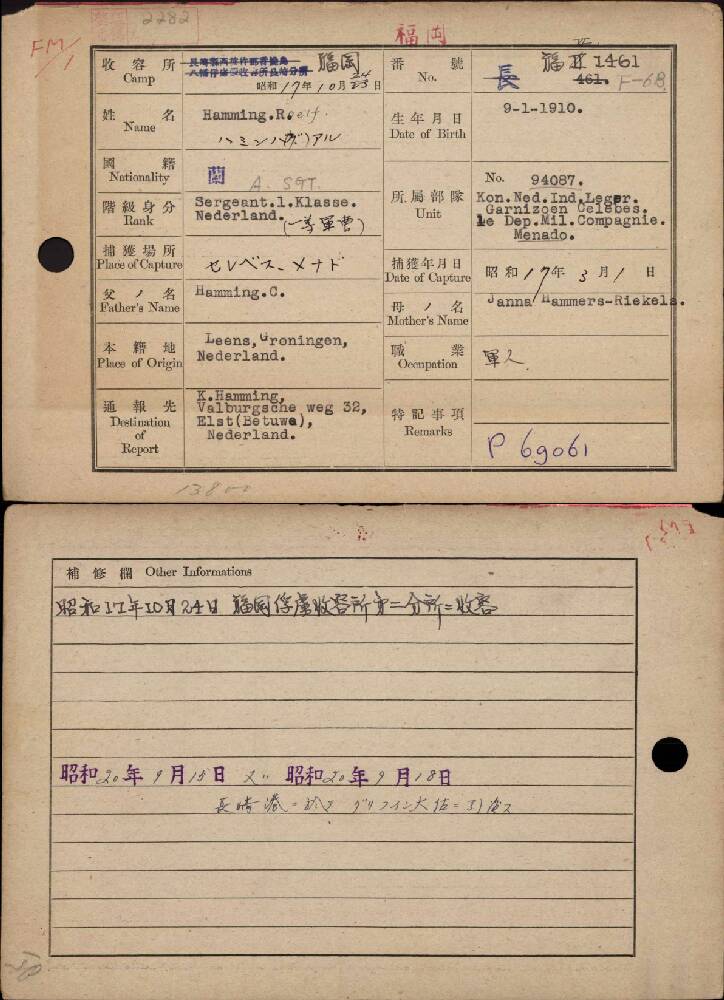 2282
FM/1
福岡
收容所
Camp
福岡
昭和17年10月24日
番號
No.
長
福II 1461
461. F-6B
姓名
Name
Hamming.Roelf.
生年月日
Date of Birth
9-1-1910.
國籍
Nationality
蘭
A. SGT.
階級身分
Rank
Sergeant.1.Klasse.
Nederland.
(一等軍曹)
所屬部隊
Unit
No. 94087.
Kon.Ned.Ind.Leger.
Garnizoen Celebes.
1e Dep.Mil.Compagnie.
Menado.
捕獲場所
Place of Capture
セレベス、メナド
捕獲年月日
Date of Capture
昭和17年3月1日
父ノ名
Father's Name
Hamming.C.
母ノ名
Mother's Name
Janna Hammers-Riekels.
本籍地
Place of Origin
Leens,Groningen,
Nederland.
職業
Occupation
軍人
通報先
Destination
of
Report
K.Hamming,
Valburgsche weg 32,
Elst(Betuwe),
Nederland.
特記事項
Remarks
P 69061
補修欄 Other Informations
昭和17年10月24日 福岡俘虜收容所第二分所ニ收容
昭和20年9月15日 又ハ 昭和20年9月18日
長崎港ニ於テ グリフイン大佐ニ引渡ス